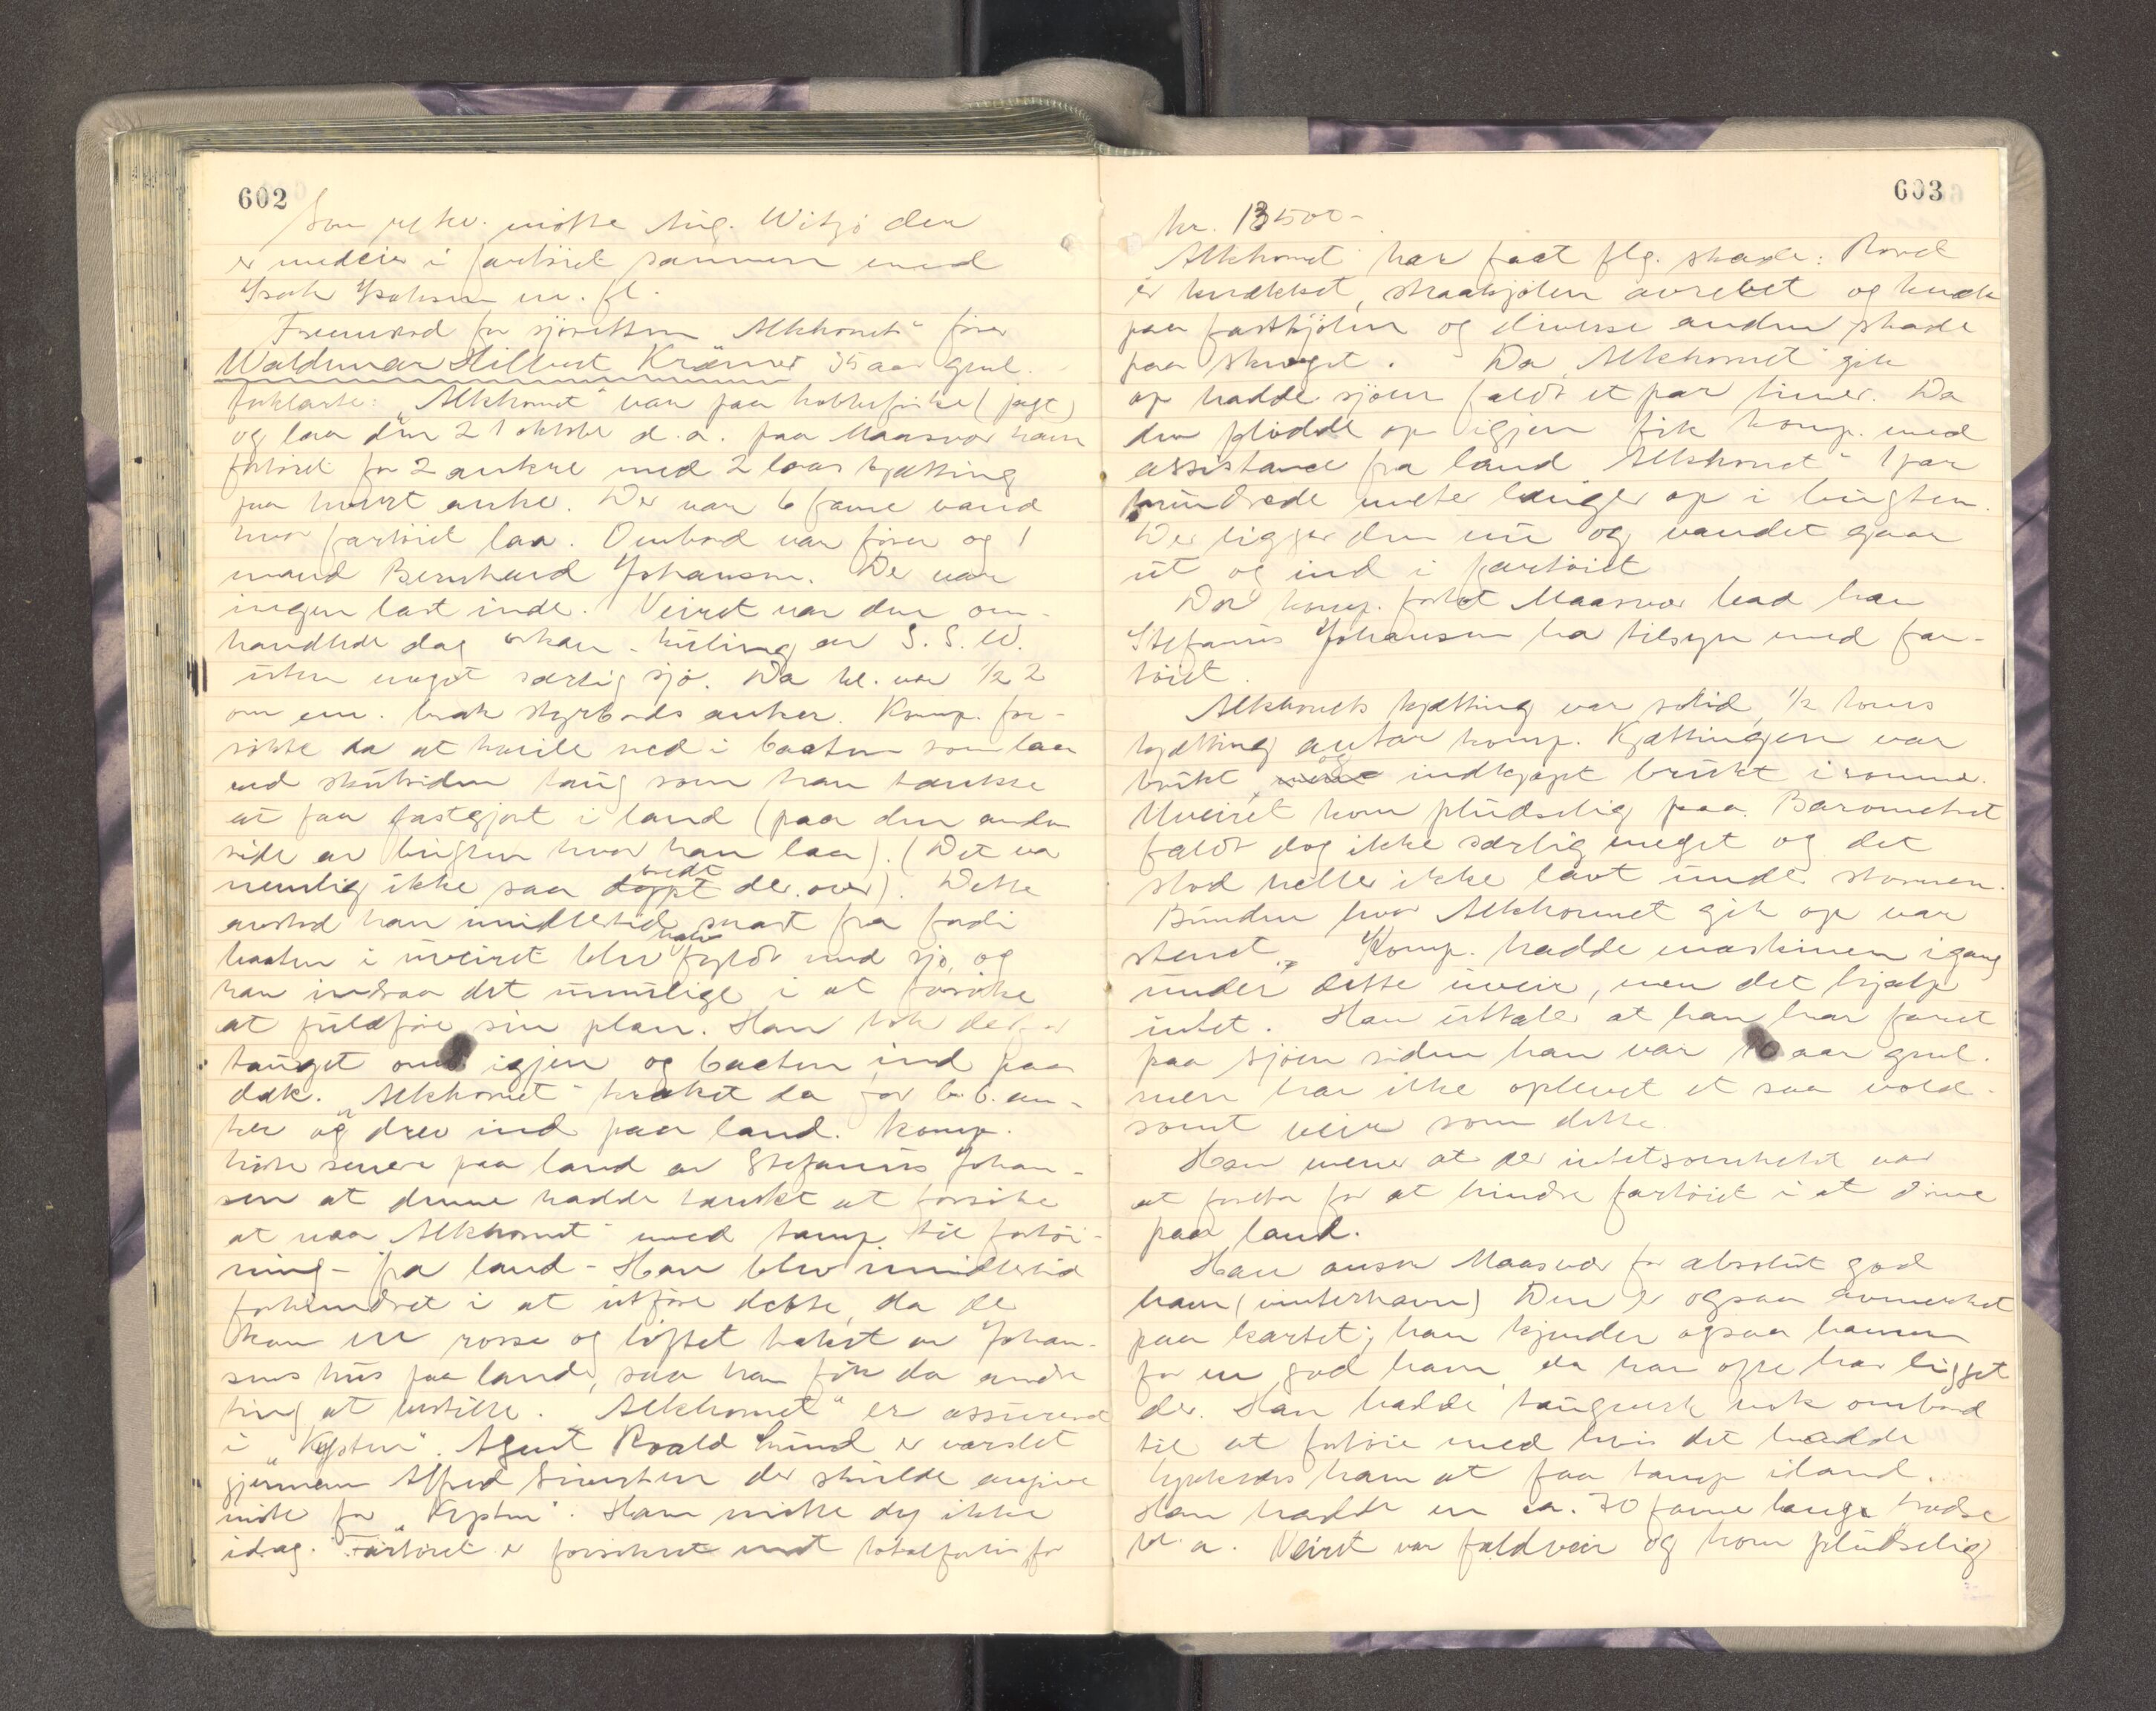 602
Som            møtte Aug. Witzø den
er medeier i fartöiet sammen med
Isak Isaksen m. fl.
Fremstod for sjöretten „Alkhornets" förer
Waldemar Hilbert Kræmer 35 aar gml.
forklarte: „Alkhornet" var paa kobbefiske (jagt)
og laa den 21 oktober d.a. paa Maasvær havn
fortöiet for 2 ankre med 2 laas kjætting
paa hvert anker. Der var 6 favne vand
hvor fartöiet laa. Ombord var förer og 1
mand Bernhard Johansen. Der var
ingen last inde. Veiret var den om-
handlede dag orkan-kuling av S.S.W.
uten noget særlig sjö. Da kl. var 1/2 2
om em. brak styrbords anker. Komp. for-
sökte da at kveile ned i baaten som laa
ved skutesiden taug som han tænkte
at faa fastgjort i land (paa den anden
side av bugten hvor han laa). (Det var
nemlig ikke saa bredt der over). Dette
avstod han imidlertid snart fra fordi
baaten i uveiret blev halv fyldt med sjö, og
han indsaa det umulige i at forsöke
at fuldföre sin plan. Han tok derfor
tauget ombord igjen og baaten ind paa
dæk. „Alkhornet" trækket da for b.b. an-
ker og drev ind paa land. Komp.
hörte senere paa land av Stefanus Johan-
sen at denne hadde tænkt at forsöke
at naa „Alkhornet" med tamp til fortöi-
ning - fra land - Han blev imidlertid
forhindret i at utföre dette, da der
kom en rosse og löftet taket av Johan-
sens hus paa land, saa han fik da andre
ting at bestille. „Alkhornet" er assurert
i „Kysten". Agent Roald Lund er varslet
gjennem Alfred Sivertsen der skulde avgive
möte for „Kysten". Han mötte dog ikke
idag. Fartöiet er forsikret mot totalforlis for
603
kr. 13500-
Alkhornet har faat flg. skade: Roret
er knækket, straakjölen avrevet og knæk
paa fastkjölen og diverse anden skade
paa skroget. Da „Alkhornet" gik
op hadde sjöen faldt et par timer. Da
den flödde op igjen fik komp. med
assistance fra land „Alkhornet" 1 par
hundrede meter længer op i bugten.
Der ligger den nu og vandet gaar
ut og ind i fartöiet
Da komp. forlot Maasvær bad han
Stefanus Johansen ha tilsyn med far-
töiet.
Alkhornets kjætting var solid, 1/2 toms
kjætting antar komp. Kjættingen var
brukt, og indkjöpt brukt i sommer.
Uveiret kom pludselig paa. Barometret
faldt dog ikke særlig meget og det
stod heller ikke lavt under stormen.
Bunden hvor Alkhornet gik op var
stenet. Komp. hadde maskinen igang
under dette uveir, men det hjalp
intet. Han uttaler at han har faret
paa sjöen siden han var 10 aar gml.
men har ikke oplevet et saa vold-
somt veir som dette.
Han mener at der intetsomhelst var
at foreta for at hindre fartöiet i at drive
paa land.
Han anser Maasvær for absolut god
havn (vinterhavn) Den er ogsaa avmerket
paa kartet; han kjender ogsaa havnen
for en god havn, da han ofte har ligget
der. Han hadde taugverk nok ombord
til at fortöie med hvis det hadde
lykkedes ham at faa tamp iland.
Han hadde en ca. 70 favne lange trosse
bl. a. Veiret var faldveir og kom pludselig